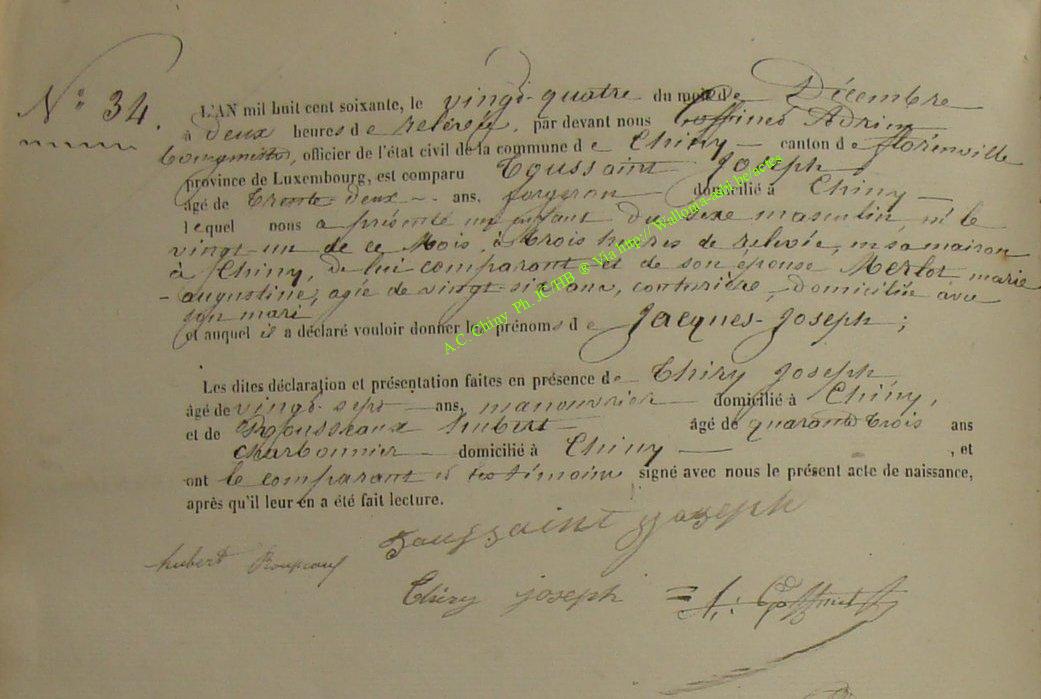 N° 34.
L'AN mil huit cent soixante, le vingt-quatre du mois de Décembre
à deux heures de relévée, par devant nous Goffinet Adrien
bourgmestre, officier de l'état civil de la commune de Chiny - canton de florenville
province de Luxembourg, est comparu Toussaint Joseph
âgé de trente-deux - ans, forgeron domicilié à Chiny
lequel nous a présenté un enfant du sexe masculin, né le
vingt-un de ce Mois, à trois heures de relevée, en sa maison
à Chiny, de lui comparant et de son épouse Merlot marie
-augustine, agée de vingt-six ans, couturière, domiciliée avec
son mari
et auquel il a déclaré vouloir donner les prénoms de Jacques-Joseph;
Les dites déclaration et présentation faites en présence de Thiry Joseph
âgé de vingt-sept - ans, manouvrier domicilié à Chiny,
et de Rousseaux hubert âgé de quarante trois ans
charbonnier domicilié à Chiny , et
ont le comparant et les témoins signé avec nous le présent acte de naissance,
après qu'il leur en a été fait lecture.
Toussaint Joseph
hubert
Thiry joseph = A. Goffinet
A.C. Chiny Ph. JC/HB ® Via http://Wallonia-asbl.be/actes